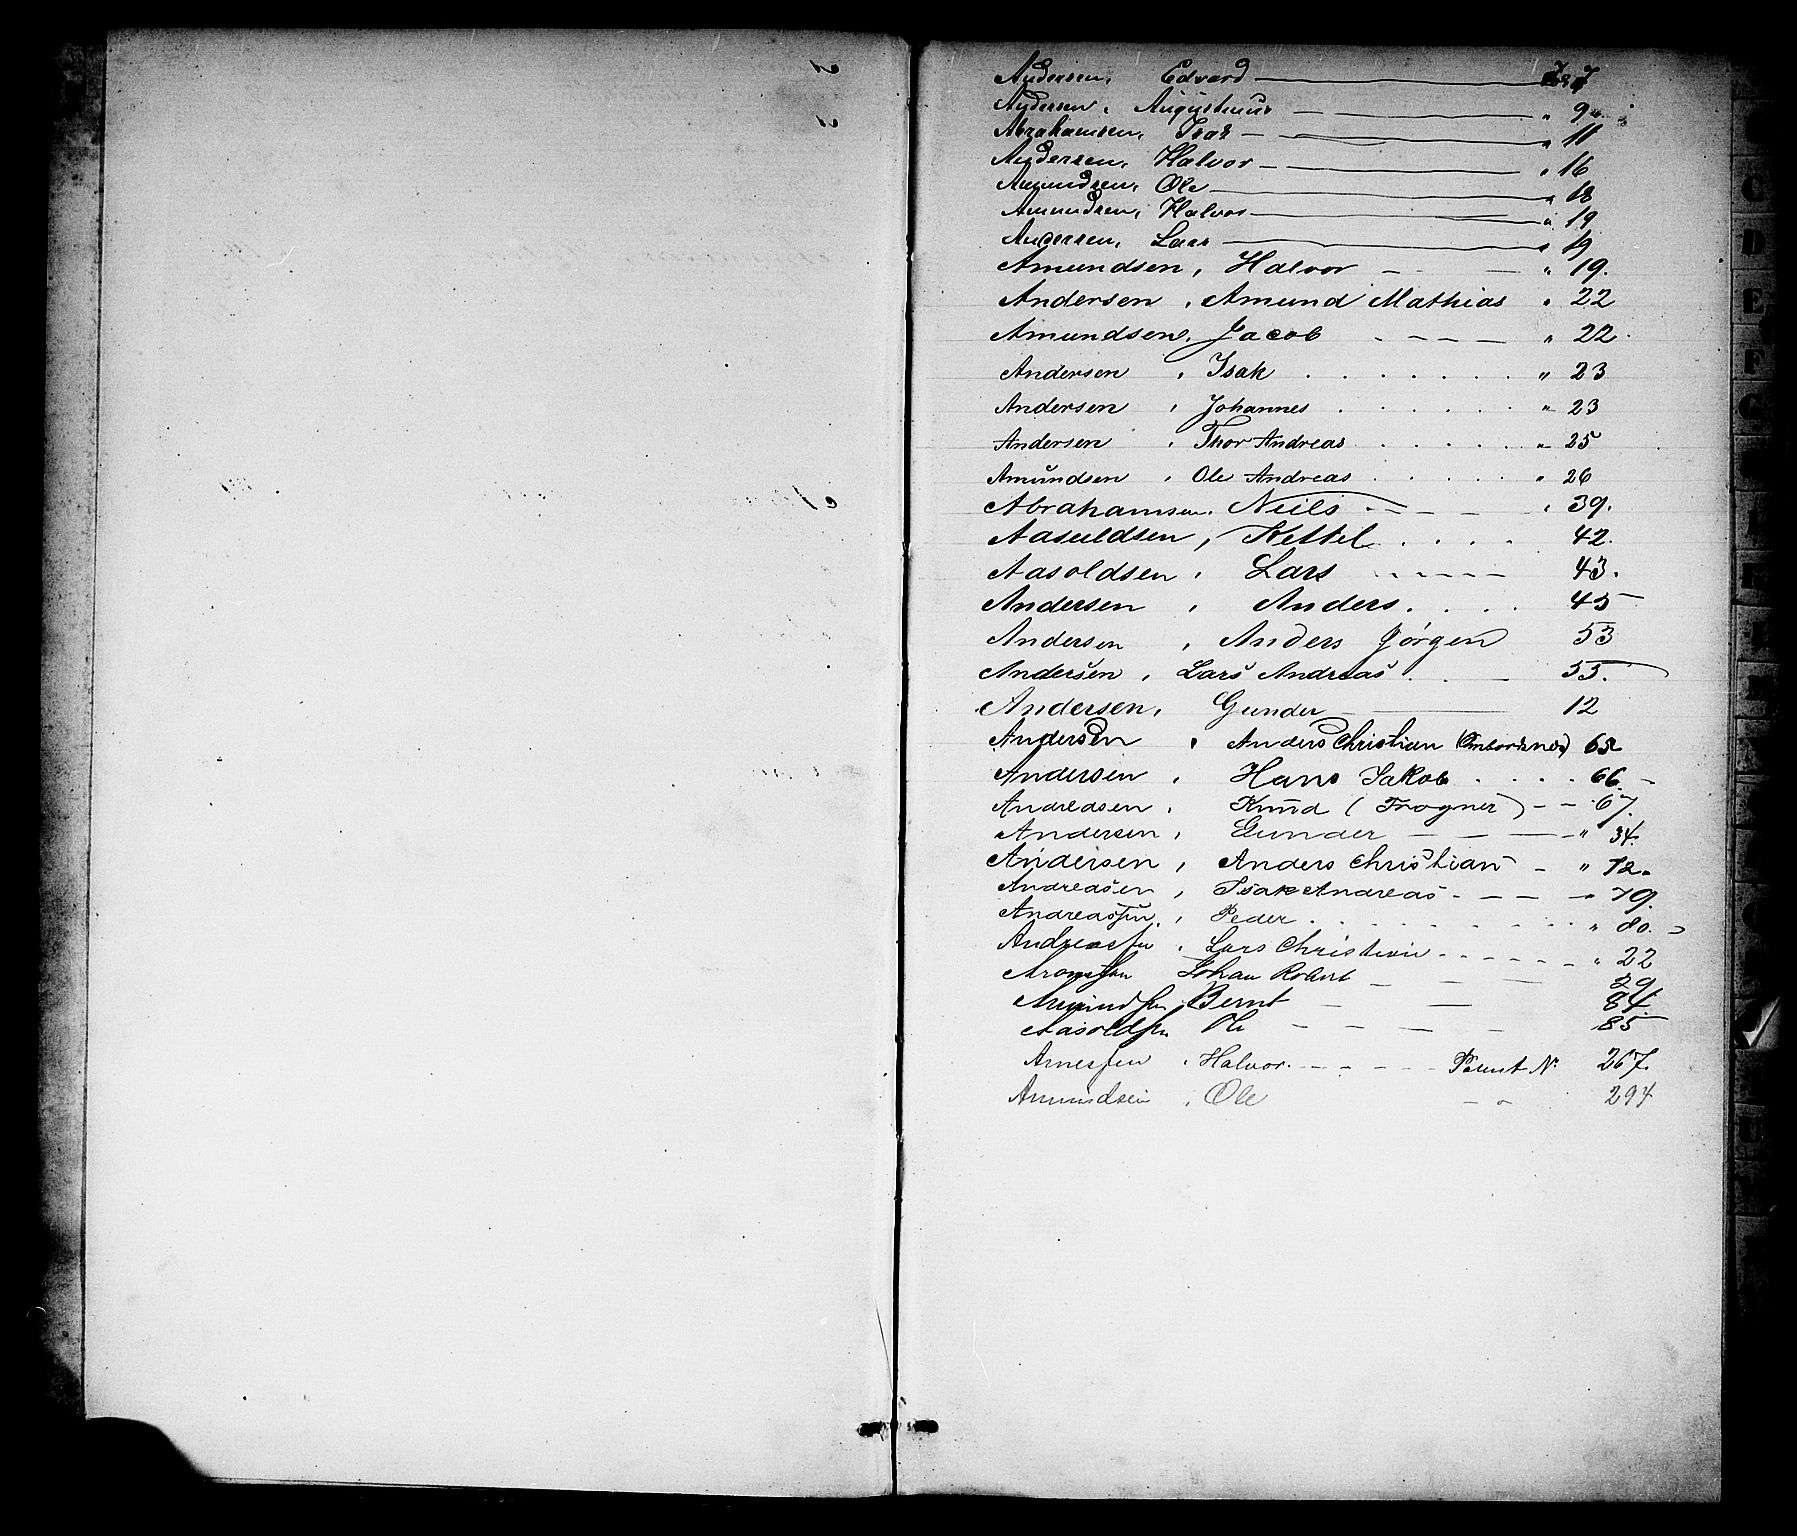 Andersen, Edvard 7
Andersen, Augustinus " 9
Abrahamsen, Isak " 11
Andersen, Halvor " 16
Amundsen, Ole " 18
Amundsen, Halvor " 19
Andersen, Lars " 19
Amundsen, Halvor - - " 19.
Andersen, Amund Mathias " 22
Amundsen, Jacob - - - - " 22.
Andersen, Isak . . . . . . . " 23
Andersen, Johannes . . . . . . " 23
Andersen, Thor Andreas . . . . . " 25
Amundsen, Ole Andreas . . . . . " 26
Abrahamsen, Niels - - - - " 39.
Aasuldsen, Kettel . . . . 42.
Aasoldsen, Lars - - - - - 43.
Andersen, Anders . . . . 45
Andersen, Anders Jørgen 53
Andersen, Lars Andreas . . - 55.
Andersen, Gunder - 12
Andersen, Anders Christian 65
Andersen, Hans Jakob . . . . 66.
Andreasen, Knud (Frogner) - - 67.
Andersen, Gunder - - - " 34.
Andersen, Anders Christian - " 72.
Andreasen, Isak Andreas - - - " 79.
Andreassen, Peder . . . . . . . " 80.
Andreassen, Lars Christian - - - - - " 22
Aronssen Johan Robert - - - 29.
Amundssen, Bernt - - 84.
Aasoldsen, Ole - - - - 85
Arnessen, Halvor. - - - - - Patent N. 267.
Amundsen, Ole - " 294